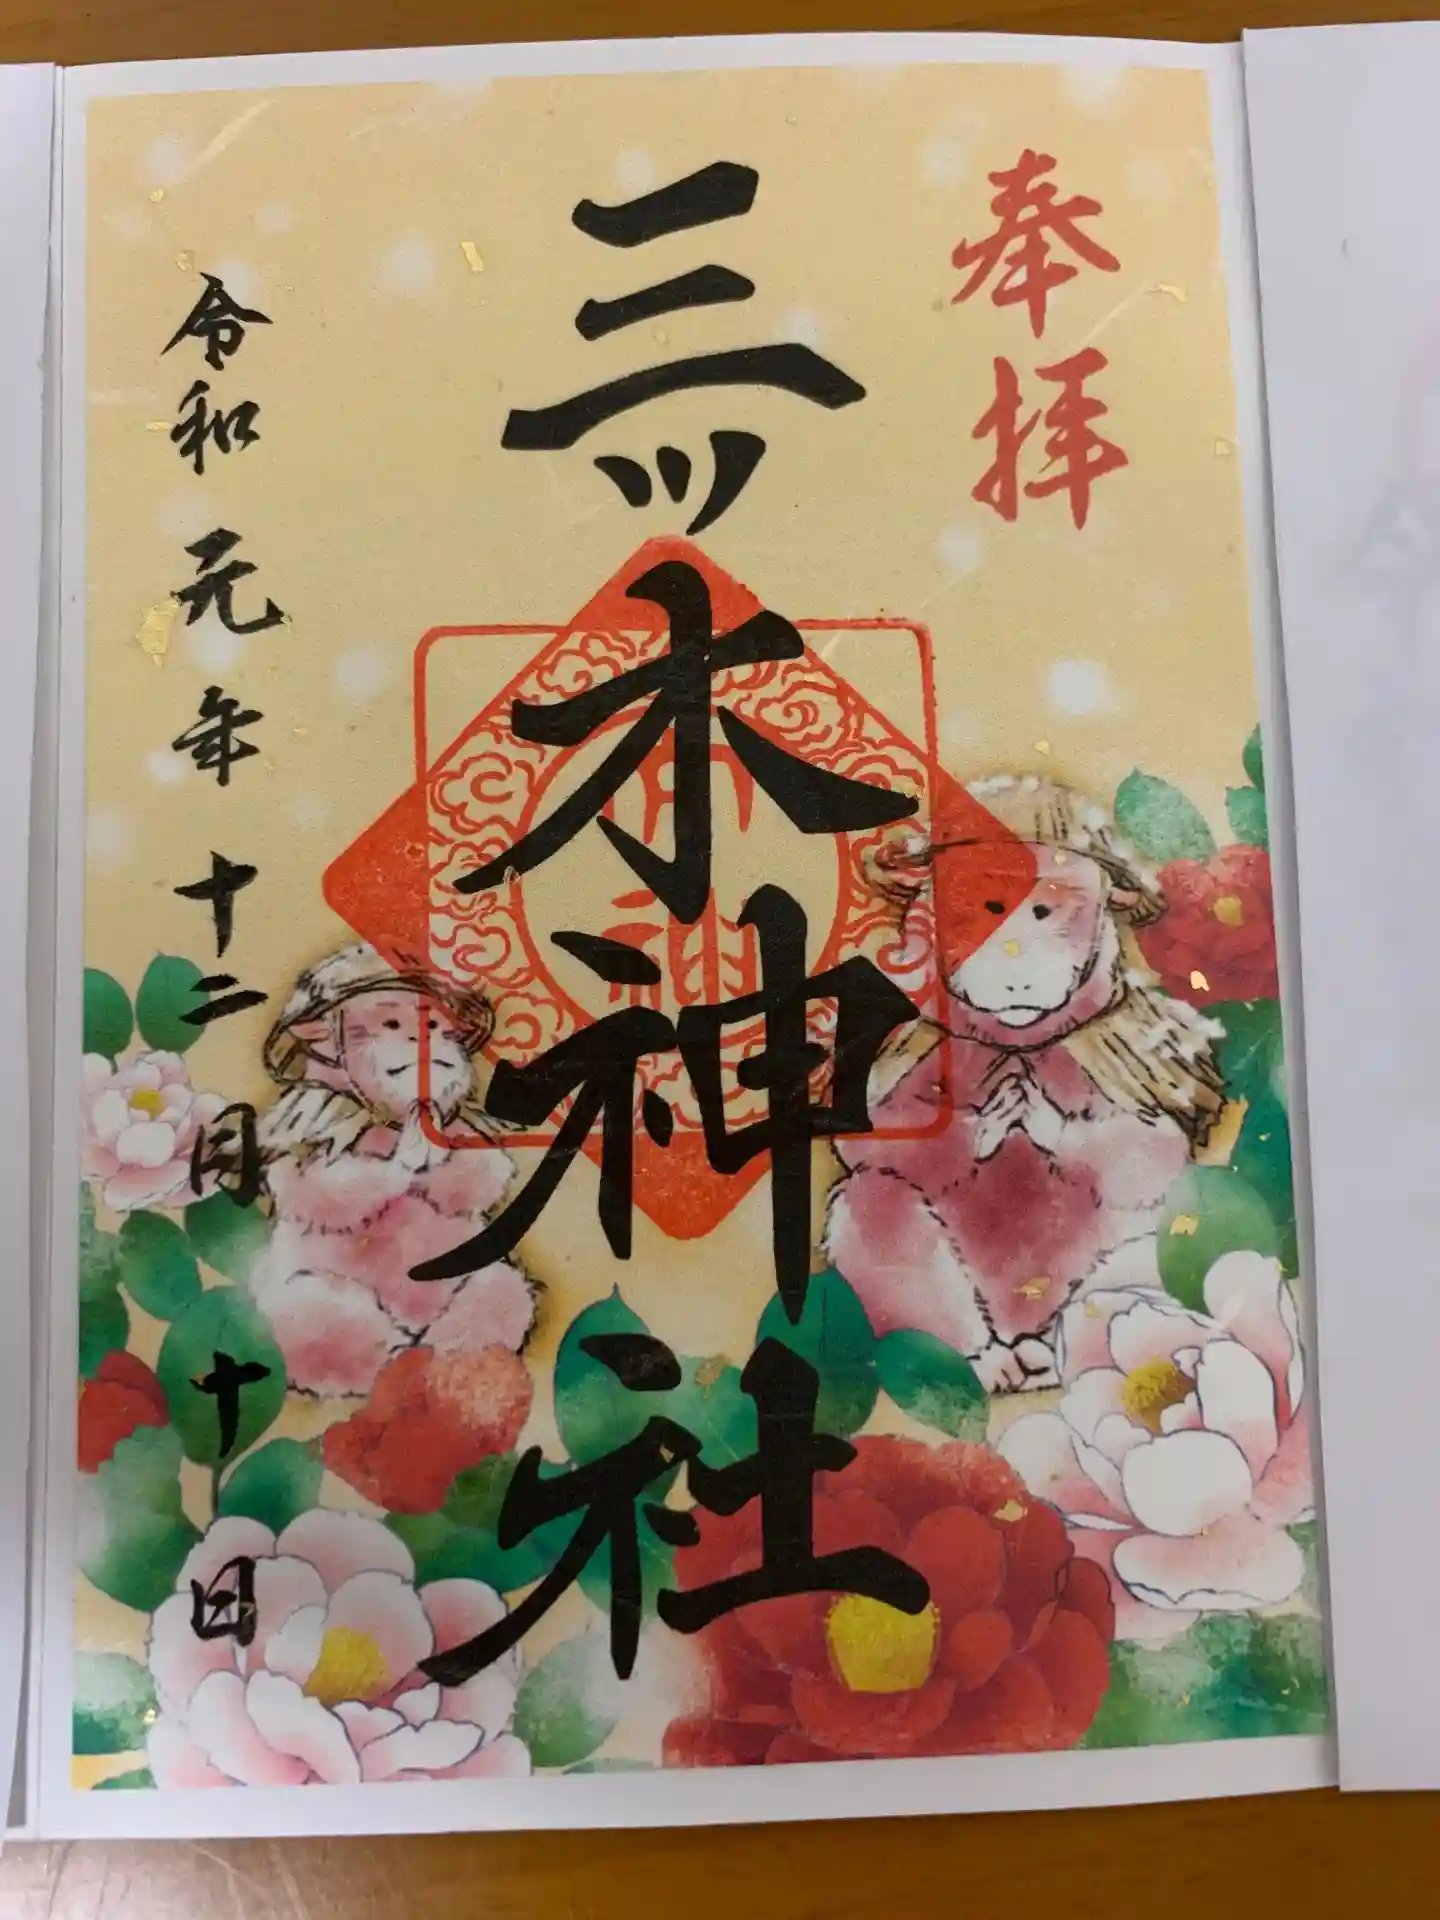 奉拝
三ツ木神社
令和元年十二月十日